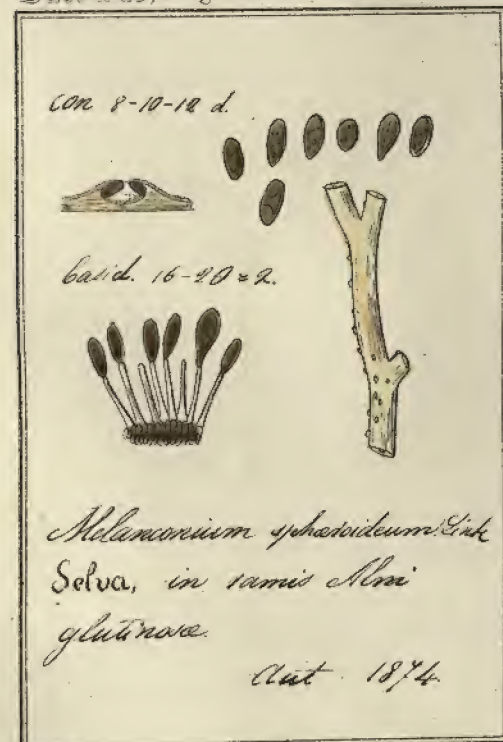 con 8-10-12 d.
basid. 16-20=2.
Melanconium sphæroideum Link
Selva, in ramis Alni
glutinosæ
Aut. 1874